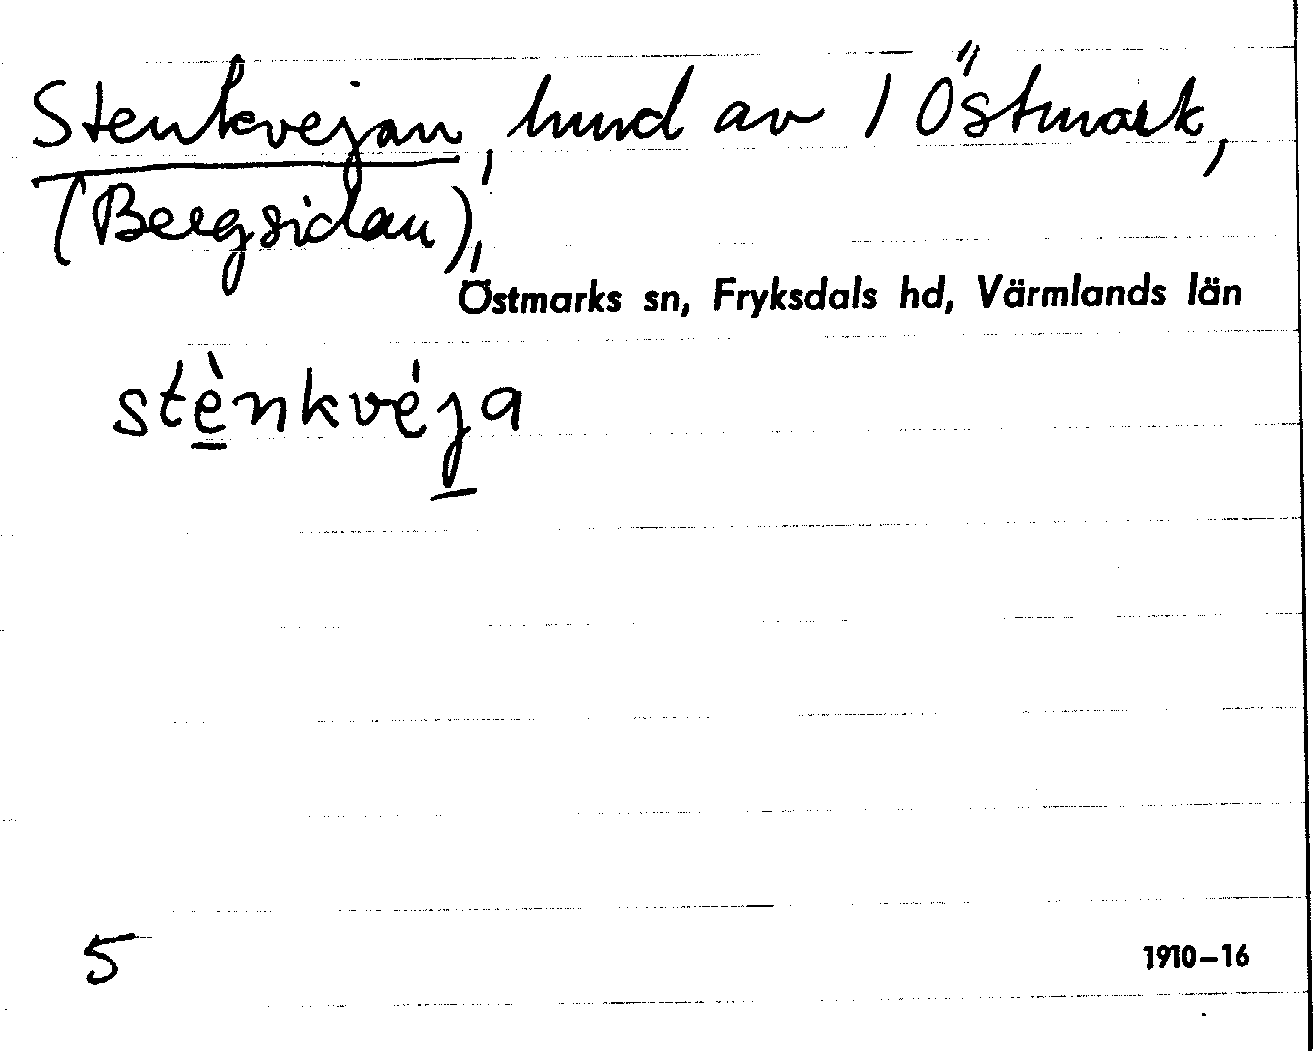 Stenkvejan, hmd av 1 Östmark,
(Bergsidan),
Östmarks sn, Fryksdals hd, Värmlands län
stènkvéja
5
1910-16